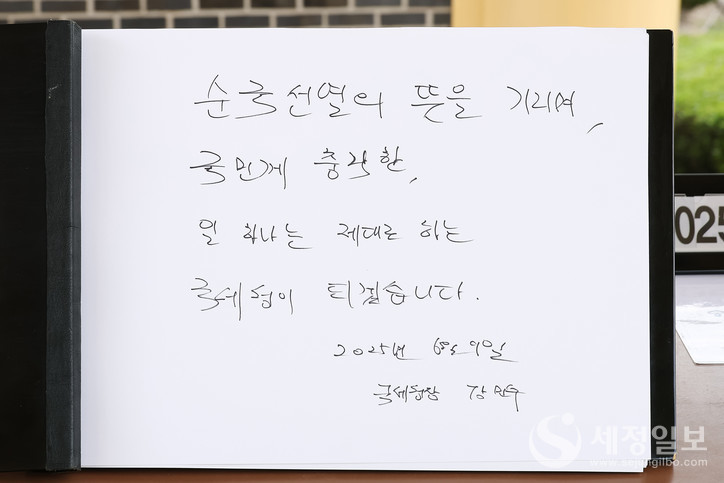 순국선열의 뜻을 기리며,
국민께 충직한,
일 하나는 제대로 하는
국세청이 되겠습니다.
2025년 6월 9일
국세청장 강민수
025
세정일보
www.sejungilbo.com